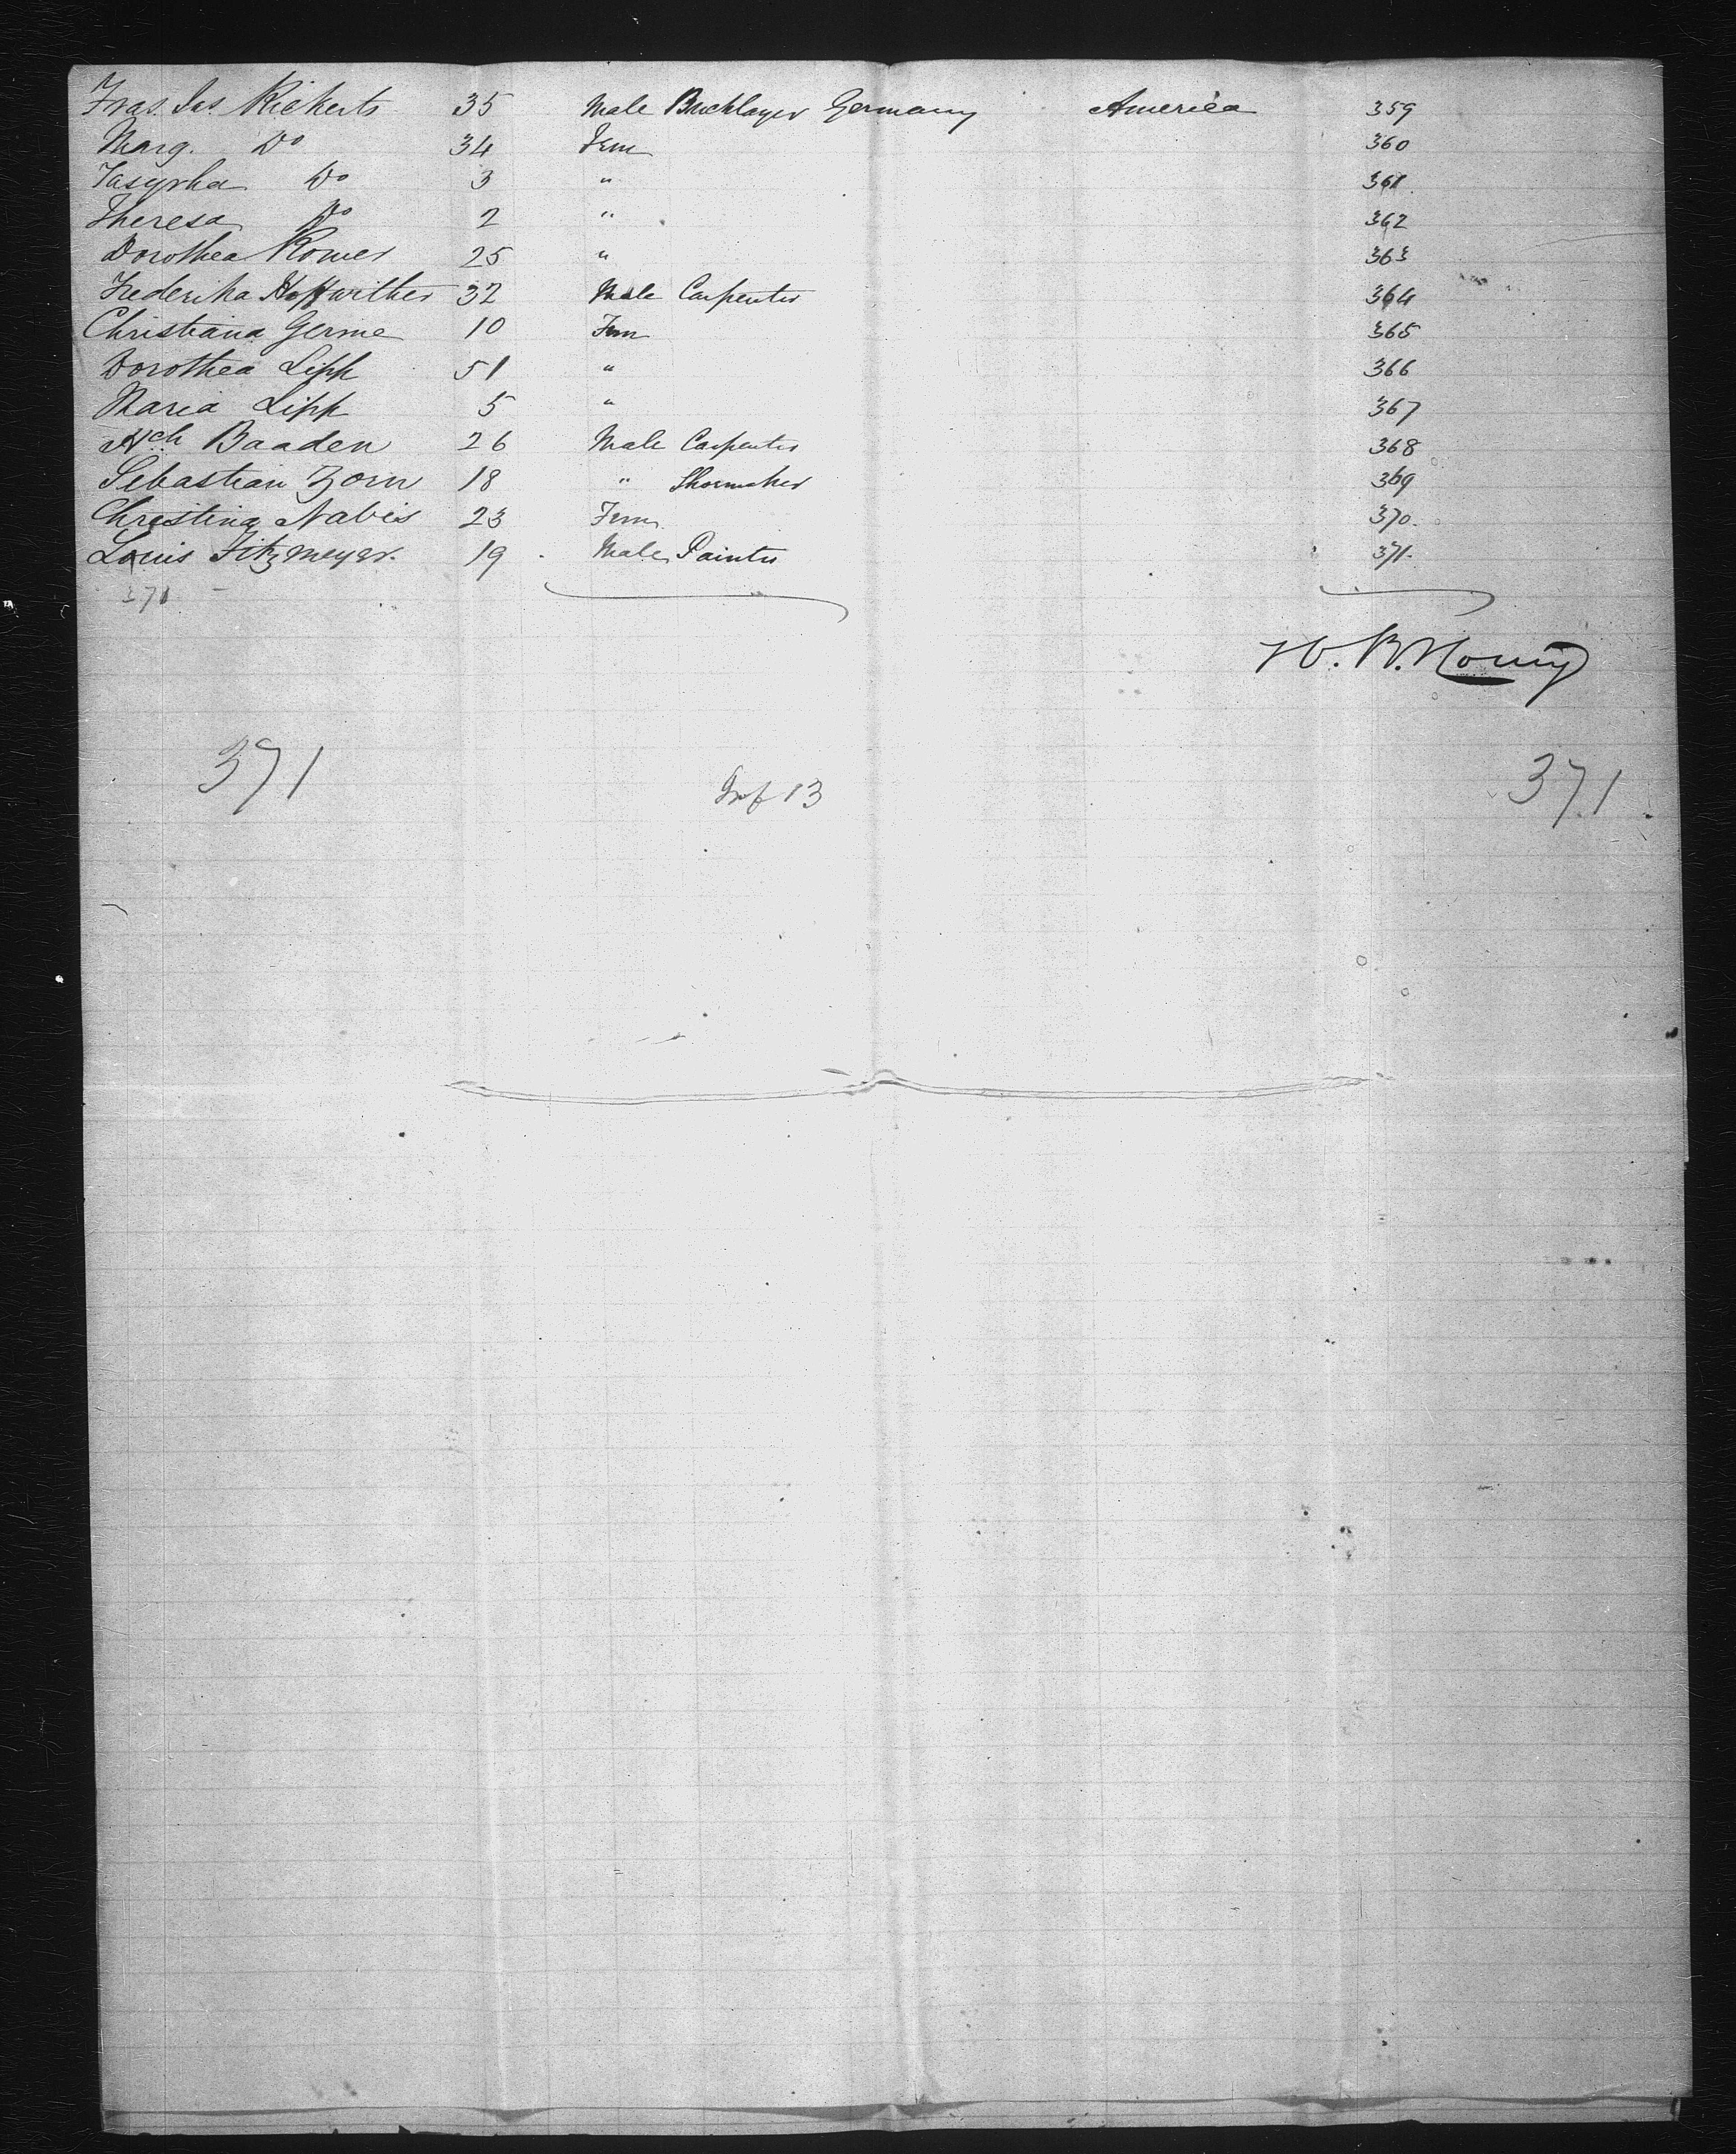 Fras. Jas. Rickerts 35 Male Bricklayer Germany America 359
Marg. Do 34 Fem 360
Do 3 " 361
Theresa Do 2 " 362
Dorothea Romer 25 " 363
Frederika 32 Male Carpenter 364
Christiana Germe 10 Fem 365
Dorothea Lipp 51 " 366
Maria Lipp 5 " 367
Baaden 26 Male Carpenter 368
Sebastian Zorn 18 " Shoemaker 369
Christina Nabeis 23 Fem 370.
Louis Fitzmeyer. 19 Male Painter 371.
371
371 Inf 13 371